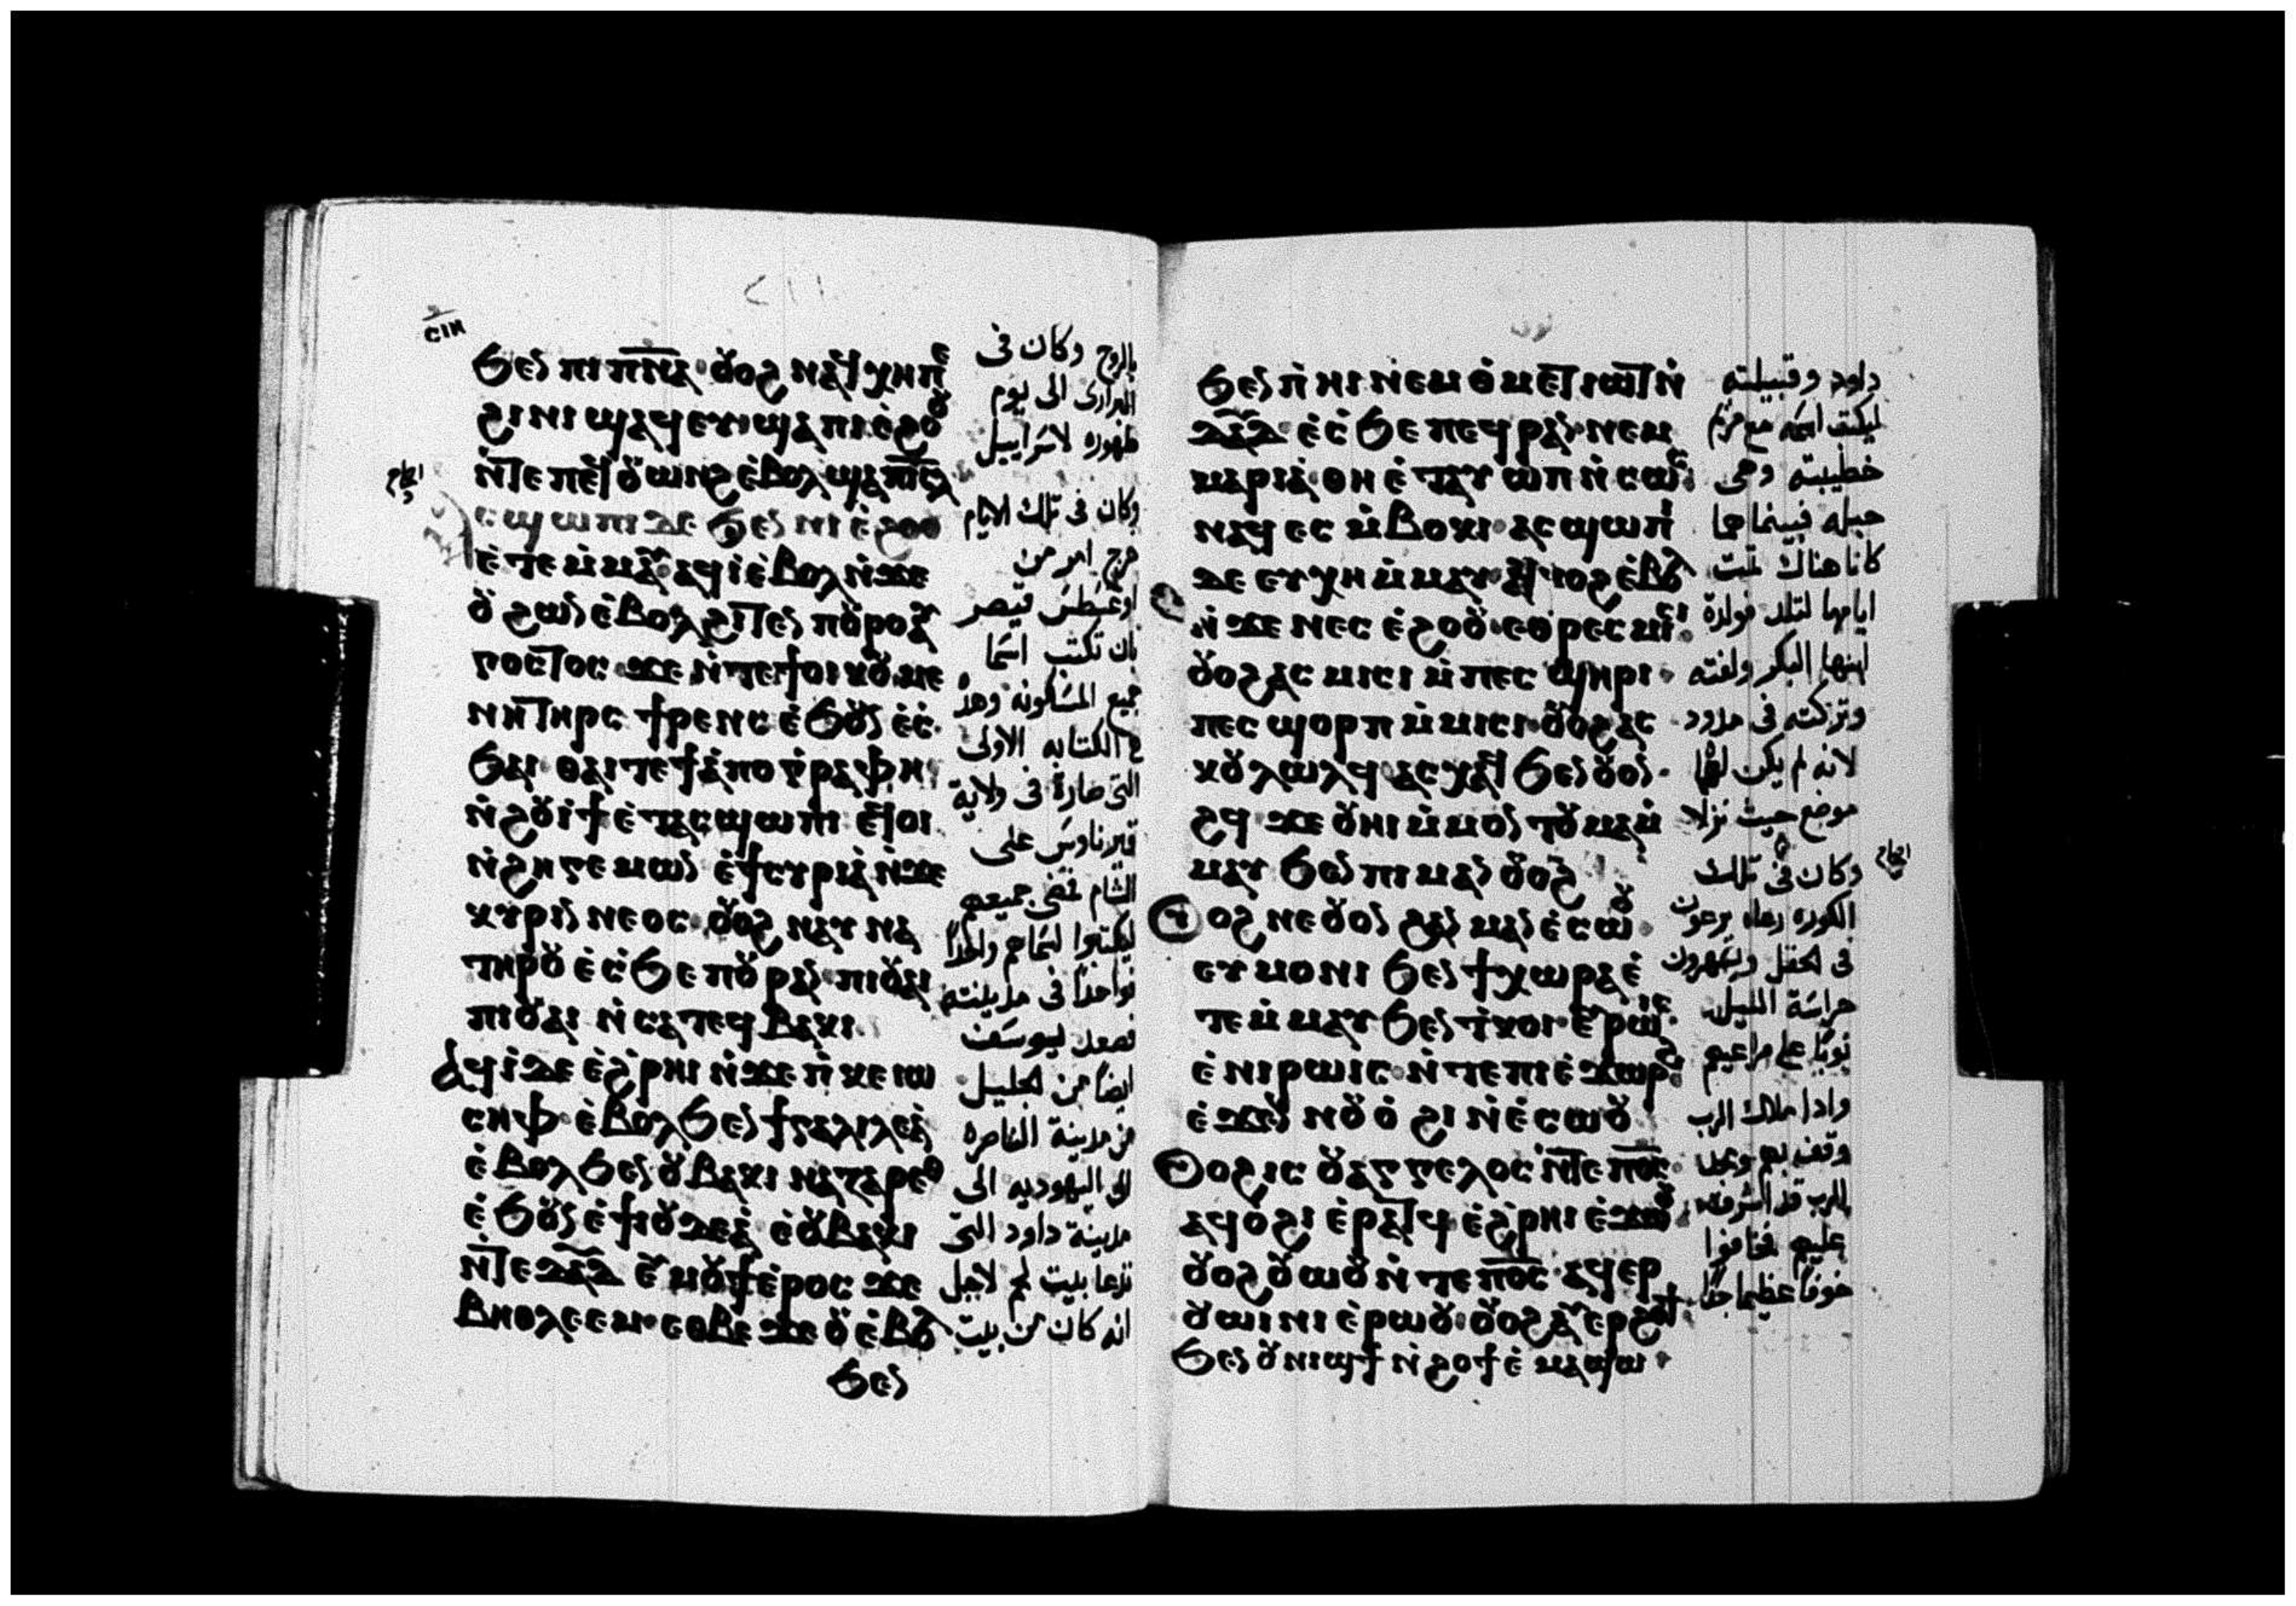 ⲥⲓⲏ
ϧⲉⲛ ⲡⲓⲡ̅ⲛ̅ⲁ̅ ⲟⲩⲟϩ ⲛⲁϥⲭⲏ ⲡⲉ
ϩⲓ ⲛⲓϣⲁϥⲉⲩ ϣⲁ ⲡⲓⲉ̀ϩⲟⲟⲩ
ⲛ̀ⲧⲉ ⲡⲉϥⲟⲩⲱⲛϩ ⲉ̀ⲃⲟⲗ ϣⲁ ⲡⲓⲥ̅ⲗ̅
ⲥϣⲱⲡⲓ ⲇⲉ ϧⲉⲛ ⲛⲓⲉ̀ϩⲟⲟⲩ
ⲉ̀ⲧⲉ ⲙ̀ⲙⲁⲩ ⲁϥⲓ̀ ⲉ̀ⲃⲟⲗ ⲛ̀ϫⲉ
ⲟⲩϩⲱⲛ ⲉ̀ⲃⲟⲗ ϩⲓⲧⲉⲛ ⲡⲟⲩⲣⲟ ⲁⲩ
ⲅⲟⲥⲧⲟⲥ ϫⲉ ⲛ̀ⲧⲉ ϯⲟⲓⲕⲟⲩⲙⲉ
ⲛⲏ ⲧⲏⲣⲥ ϯⲣⲉⲛⲥ ⲉ̀ϧⲟⲩⲛ ⲉ̀ⲥ̀
ϧⲁⲓ ⲑⲁⲓ ⲧⲉ ϯⲁ̀ⲡⲟⲅⲣⲁⲫⲏ
ⲛ̀ϩⲟⲩⲓ̀ϯ ⲉ̀ⲧⲁⲥϣⲱⲡⲓ ⲉϥⲟⲓ
ⲛ̀ϩⲏⲅⲉⲙⲱⲛ ⲉ̀ϯⲥⲩⲣⲓⲁ̀ ⲛ̀ϫⲉ
ⲕⲩⲣⲓⲛⲛⲉⲟⲥ ⲟⲩⲟϩ ⲛⲁⲩⲛⲁ
ⲧⲏⲣⲟⲩ ⲉ̀ⲥ̀ϧⲉ ⲡⲟⲩⲣⲁⲛ ⲡⲓⲟⲩⲁⲓ
ⲡⲓⲟⲩⲁⲓ ⲛ̀ⲥⲁ ⲧⲉϥⲃⲁⲕⲓ
ⲁϥⲓ̀ ⲇⲉ ⲉ̀ϩ̀ⲣⲏⲓ ⲛ̀ϫⲉ ⲡ̀ⲕⲉ ⲓⲱ
ⲥⲏⲫ ⲉ̀ⲃⲟⲗ ϧⲉⲛ ϯⲅⲁⲗⲓⲗⲉⲁ̀
ⲉ̀ⲃⲟⲗ ϧⲉⲛ ⲟⲩⲃⲁⲕⲓ ⲛⲁⲍⲁⲣⲉⲑ
ⲉ̀ϧⲟⲩⲛ ⲉ̀ϯⲓⲟⲩⲇⲉⲁ̀ ⲉ̀ⲟⲩⲃⲁⲕⲓ
ⲛ̀ⲧⲉ ⲇ̅ⲁ̅ⲇ̅ ⲉⲩⲙⲟⲩϯ ⲉ̀ⲣⲟⲥ ϫⲉ
ⲃⲏⲑⲗⲉⲉⲙ ⲉⲑⲃⲉ ϫⲉ ⲟⲩⲉ̀ⲃⲟⲗ
ϧⲉⲛ
بالروح وكان فى
البرارى الى يوم
ظهوره لاسرايل
وكان فى تلك الايام
خرج امر من
اوغسطس قيصر
بان تكتب اسما
جميع المسكونه وهذ
الكتابه الاولى
التى صارة فى ولاية
قيريناوس على
الشام فمضى جميعهم
ليكتبوا اسماهم واحدًا
فواحدًا فى مدينته
فصعد يوسف
ايضًا من الجليل
من مدينة الناصره
الى اليهوديه الى
مدينة داود التى
تدعا بيت لحم لاجل
انه كان من بيت
ϧⲉⲛ ⲡ̀ⲏⲓ ⲛⲉⲙ ⲑ̀ⲙⲉⲧⲓⲱⲧ ⲛ̀
ⲇ̅ⲁ̅ⲇ̅ ⲉ̀ⲥ̀ϧⲉ ⲡⲉϥⲣⲁⲛ ⲛⲉⲙ
ⲙⲁⲣⲓⲁ̀ ⲑⲏ ⲉ̀ⲧⲁⲩⲱⲡ ⲛ̀ⲥⲱⲥ
ⲛⲁϥ ⲉⲥⲙ̀ⲃⲟⲕⲓ ⲁⲥϣⲱⲡⲓ
ⲇⲉ ⲉⲩⲭⲏ ⲙ̀ⲙⲁⲩ ⲁⲩⲙⲟϩ ⲉ̀ⲃⲟⲗ
ⲛ̀ϫⲉ ⲛⲉⲥⲉ̀ϩⲟⲟⲩ ⲉⲑⲣⲉⲥⲙⲓⲥⲓ
ⲟⲩⲟϩ ⲁⲥⲙⲓⲥⲓ ⲙ̀ⲡⲉⲥϣⲏⲣⲓ
ⲡⲉⲥϣⲟⲣⲡ ⲙ̀ⲙⲓⲥⲓ ⲟⲩⲟϩ ⲁⲥ
ⲕⲟⲩⲗⲱⲗϥ ⲁⲥⲭⲁϥ ϧⲉⲛ ⲟⲩⲟⲛ
ϩϥ ϫⲉ ⲟⲩⲏⲓ ⲙ̀ⲙⲟⲛⲧⲟⲩ ⲙⲁ ⲙ̀
ⲙⲁⲩ ϧⲉⲛ ⲡⲓⲙⲁⲛⲟⲩⲟϩ
ⲟⲩⲟϩ ⲛⲉ ⲟⲩⲟⲛ ϩⲁⲛⲙⲁⲛⲉ̀ⲥⲱⲟⲩ
ⲉⲩⲙⲟⲛⲓ ϧⲉⲛ ϯⲭⲱⲣⲁ ⲉ̀
ⲧⲉ ⲙ̀ⲙⲁⲩ ϧⲉⲛ ⲧ̀ⲕⲟⲓ ⲉⲩⲣⲱⲓⲥ
ⲉ̀ⲛⲓⲣⲱⲓⲥ ⲛ̀ⲧⲉ ⲡⲓⲉ̀ϫⲱⲣϩ
ⲉ̀ϫⲉⲛ ⲛⲟⲩⲟ̀ϩⲓ ⲛ̀ⲉ̀ⲥⲱⲟⲩ
ⲟⲩⲟϩ ⲓⲥ ⲟⲩⲁⲅⲅⲉⲗⲟⲥ ⲛ̀ⲧⲉ ⲡ̅ⲟ̅ⲥ̅
ⲁϥⲟ̀ϩⲓ ⲉ̀ⲣⲁⲧϥ ⲉ̀ϩ̀ⲣⲏⲓ ⲉ̀ϫⲱⲟⲩ
ⲟⲩⲟϩ ⲟⲩⲱⲟⲩ ⲛ̀ⲧⲉ ⲡ̅ⲟ̅ⲥ̅ ⲁϥⲉⲣ
ⲟⲩⲱⲓⲛⲓ ⲉ̀ⲣⲱⲟⲩ ⲟⲩⲟϩ ⲁⲩⲉⲣϩⲟϯ
ϧⲉⲛ ⲟⲩⲛⲓϣϯ ⲛ̀ϩⲟϯ ⲉ̀ⲙⲁϣⲱ
داود وقبيلته
ليكتب اسمه مع مريم
خطيبته وهى
حبله فبينما هما
كانا هناك تمت
ايامها لتلد فولدة
ابنها البكر ولفته
وتركته فى مدود
لانه لم يكن لهما
موضع حيث نزلا
وكان فى تلك
الكوره رعاه يرعون
فى الحقل ويسهرون
حراسة الليل
نوبًا على مراعيهم
واذا ملاك الرب
وقف بهم ومجد
الرب قد اشرف
عليهم فخافوا
خوفًا عظيما جدًا